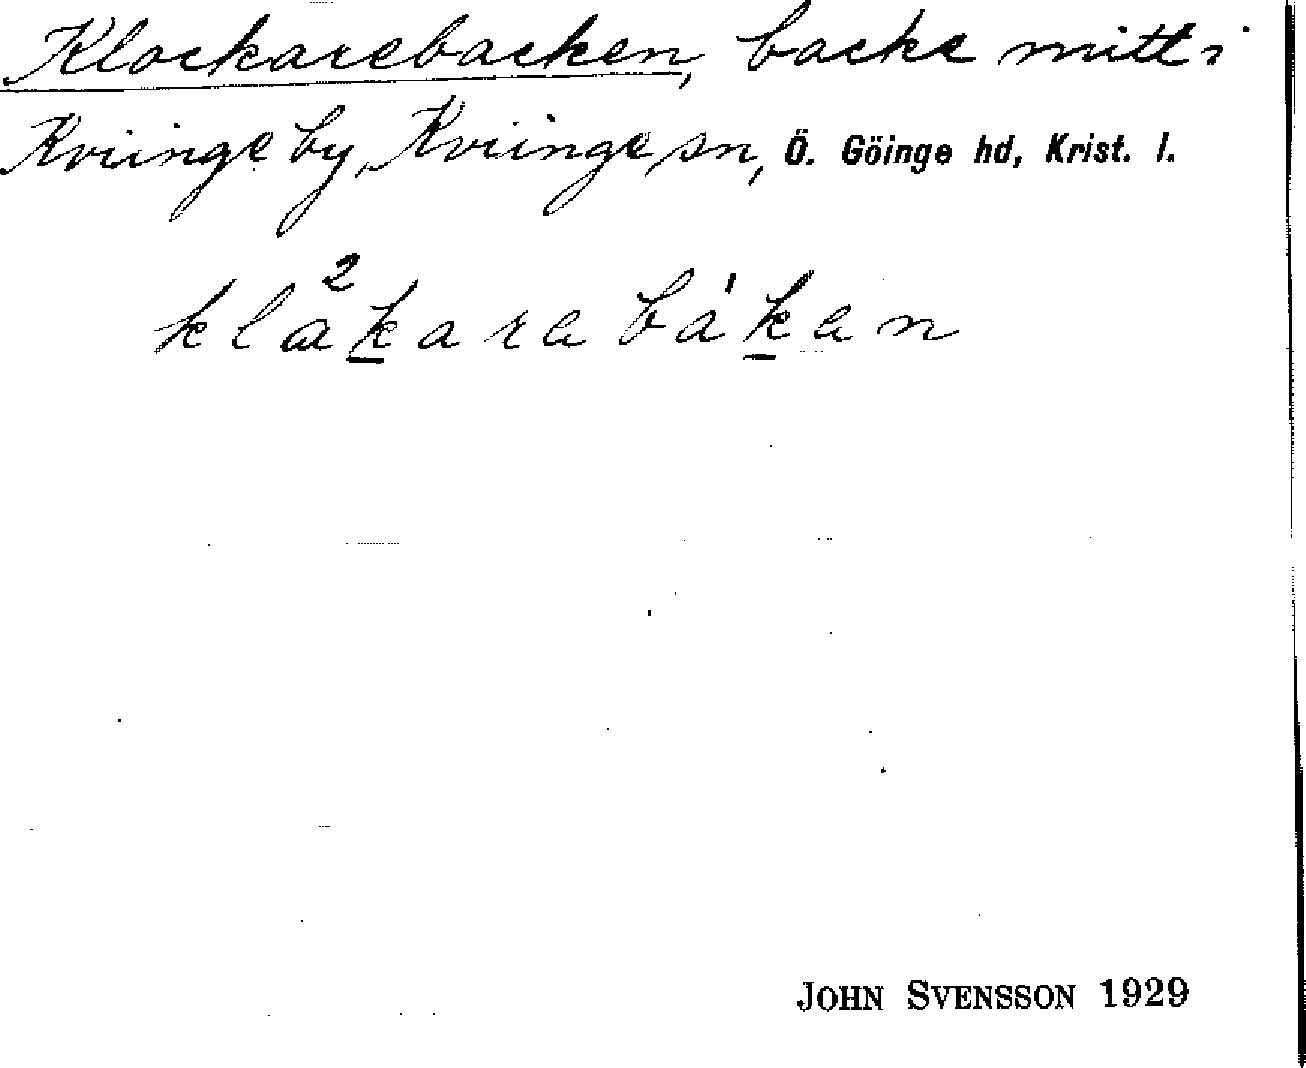 Klockarebacken, backe mitt i
Kviinge by, Kviinge sn, Ö. Göinge hd, Krist. l.
klå²k̲ara bá'k̲an
JOHN SVENSSON 1929